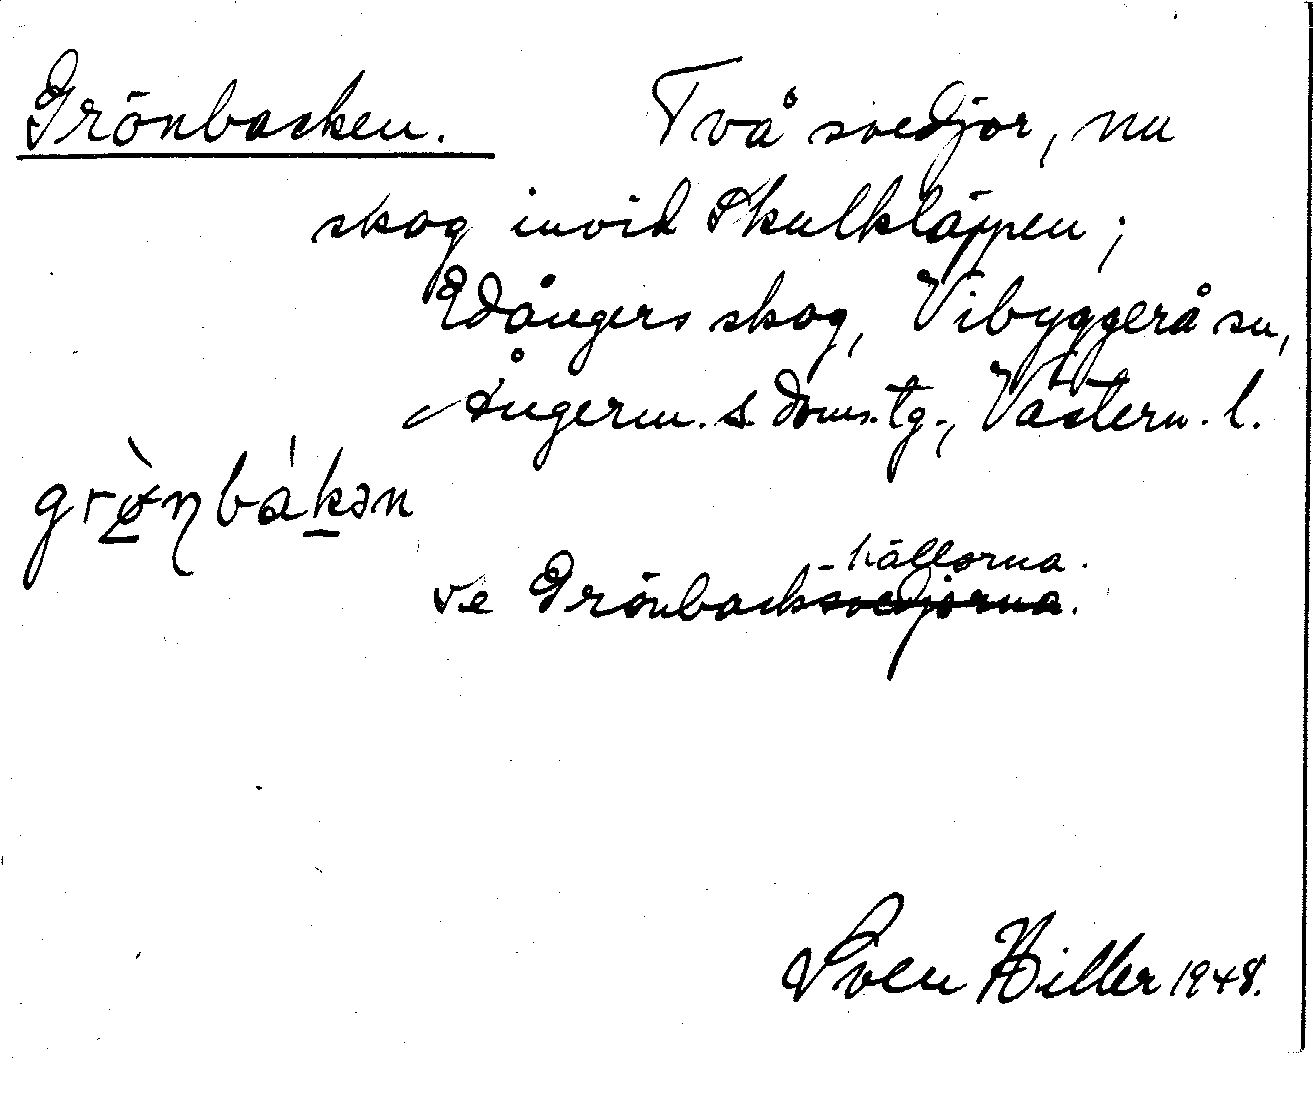 Grönbacken. Två svedjor, nu
skog invid Skulkläppen;
Edångers skog, Vibyggerå sn,
Ångerm. s. doms.tg., Västern. l.
grø̀nbákən
se Grönbacksvedjorna.
-hällorna.
Sven Hiller 1948.